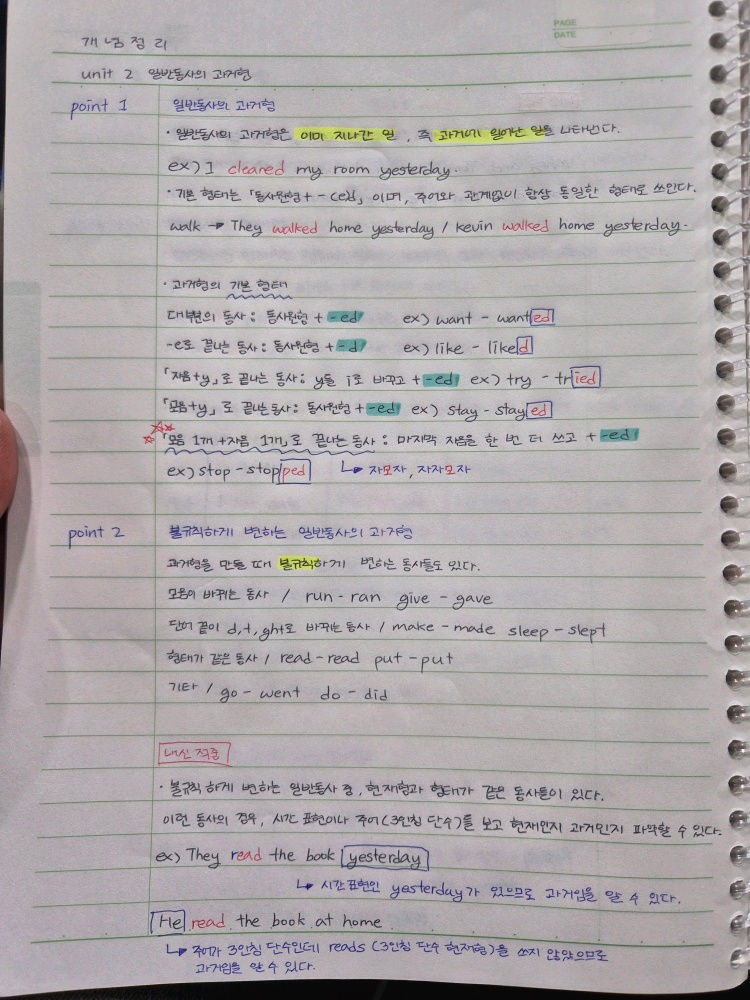 PAGE
DATE
개념정리
unit 2 일반동사의 과거형
point 1 일반동사의 과거형
· 일반동사의 과거형은 이미 지나간 일, 즉 과거에 일어난 일을 나타낸다.
ex) I cleared my room yesterday.
· 기본 형태는 「동사원형 + -(e)d」이며, 주어와 관계없이 항상 동일한 형태로 쓰인다.
walk → They walked home yesterday / kevin walked home yesterday.
· 과거형의 기본 형태
대부분의 동사 : 동사원형 + -ed ex) want - wanted
-e로 끝나는 동사 : 동사원형 + -d ex) like - liked
「자음+y」로 끝나는 동사 : y를 i로 바꾸고 + -ed ex) try - tried
「모음+y」로 끝나는 동사 : 동사원형 + -ed ex) stay - stayed
☆☆☆「모음 1개 +자음 1개」로 끝나는 동사 : 마지막 자음을 한 번 더 쓰고 + -ed
ex) stop - stopped ↳ 자모자, 자자모자
point 2 불규칙하게 변하는 일반동사의 과거형
과거형을 만들 때 불규칙하게 변하는 동사들도 있다.
모음이 바뀌는 동사 / run - ran give - gave
단어 끝이 d, t, ght로 바뀌는 동사 / make - made sleep - slept
형태가 같은 동사 / read - read put - put
기타 / go - went do - did
내신 적중
· 불규칙 하게 변하는 일반동사 중, 현재형과 형태가 같은 동사들이 있다.
이런 동사의 경우, 시간 표현이나 주어(3인칭 단수)를 보고 현재인지 과거인지 파악할 수 있다.
ex) They read the book yesterday
↳ 시간표현인 yesterday가 있으므로 과거임을 알 수 있다.
He read the book at home
↳ 주어가 3인칭 단수인데 reads (3인칭 단수 현재형)을 쓰지 않았으므로
과거임을 알 수 있다.